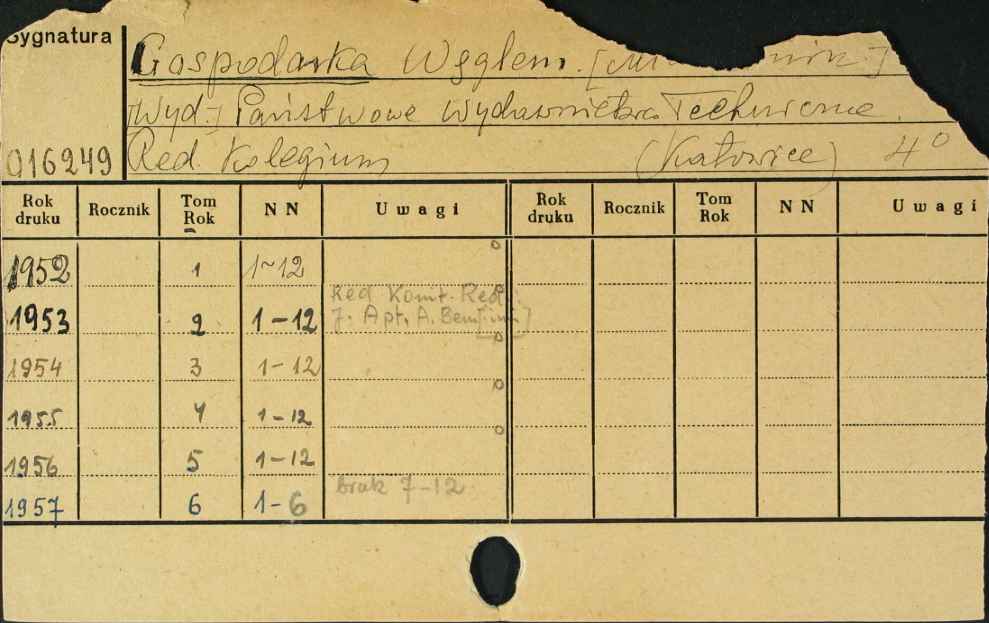 Sygnatura
Gospodarka Węglem.
[Wyd.] Państwowe Wydawnictwa Techniczne.
016249 Red. Kolegium (Katowice) 4°
Rok druku Rocznik Tom Rok NN Uwagi Rok druku Rocznik Tom Rok NN Uwagi
1952 1 1-12
Red Komit. Red.
1953 2 1-12 J. Apt, A. Bem [i in.]
1954 3 1-12
1955 4 1-12
1956 5 1-12
brak 7-12
1957 6 1-6